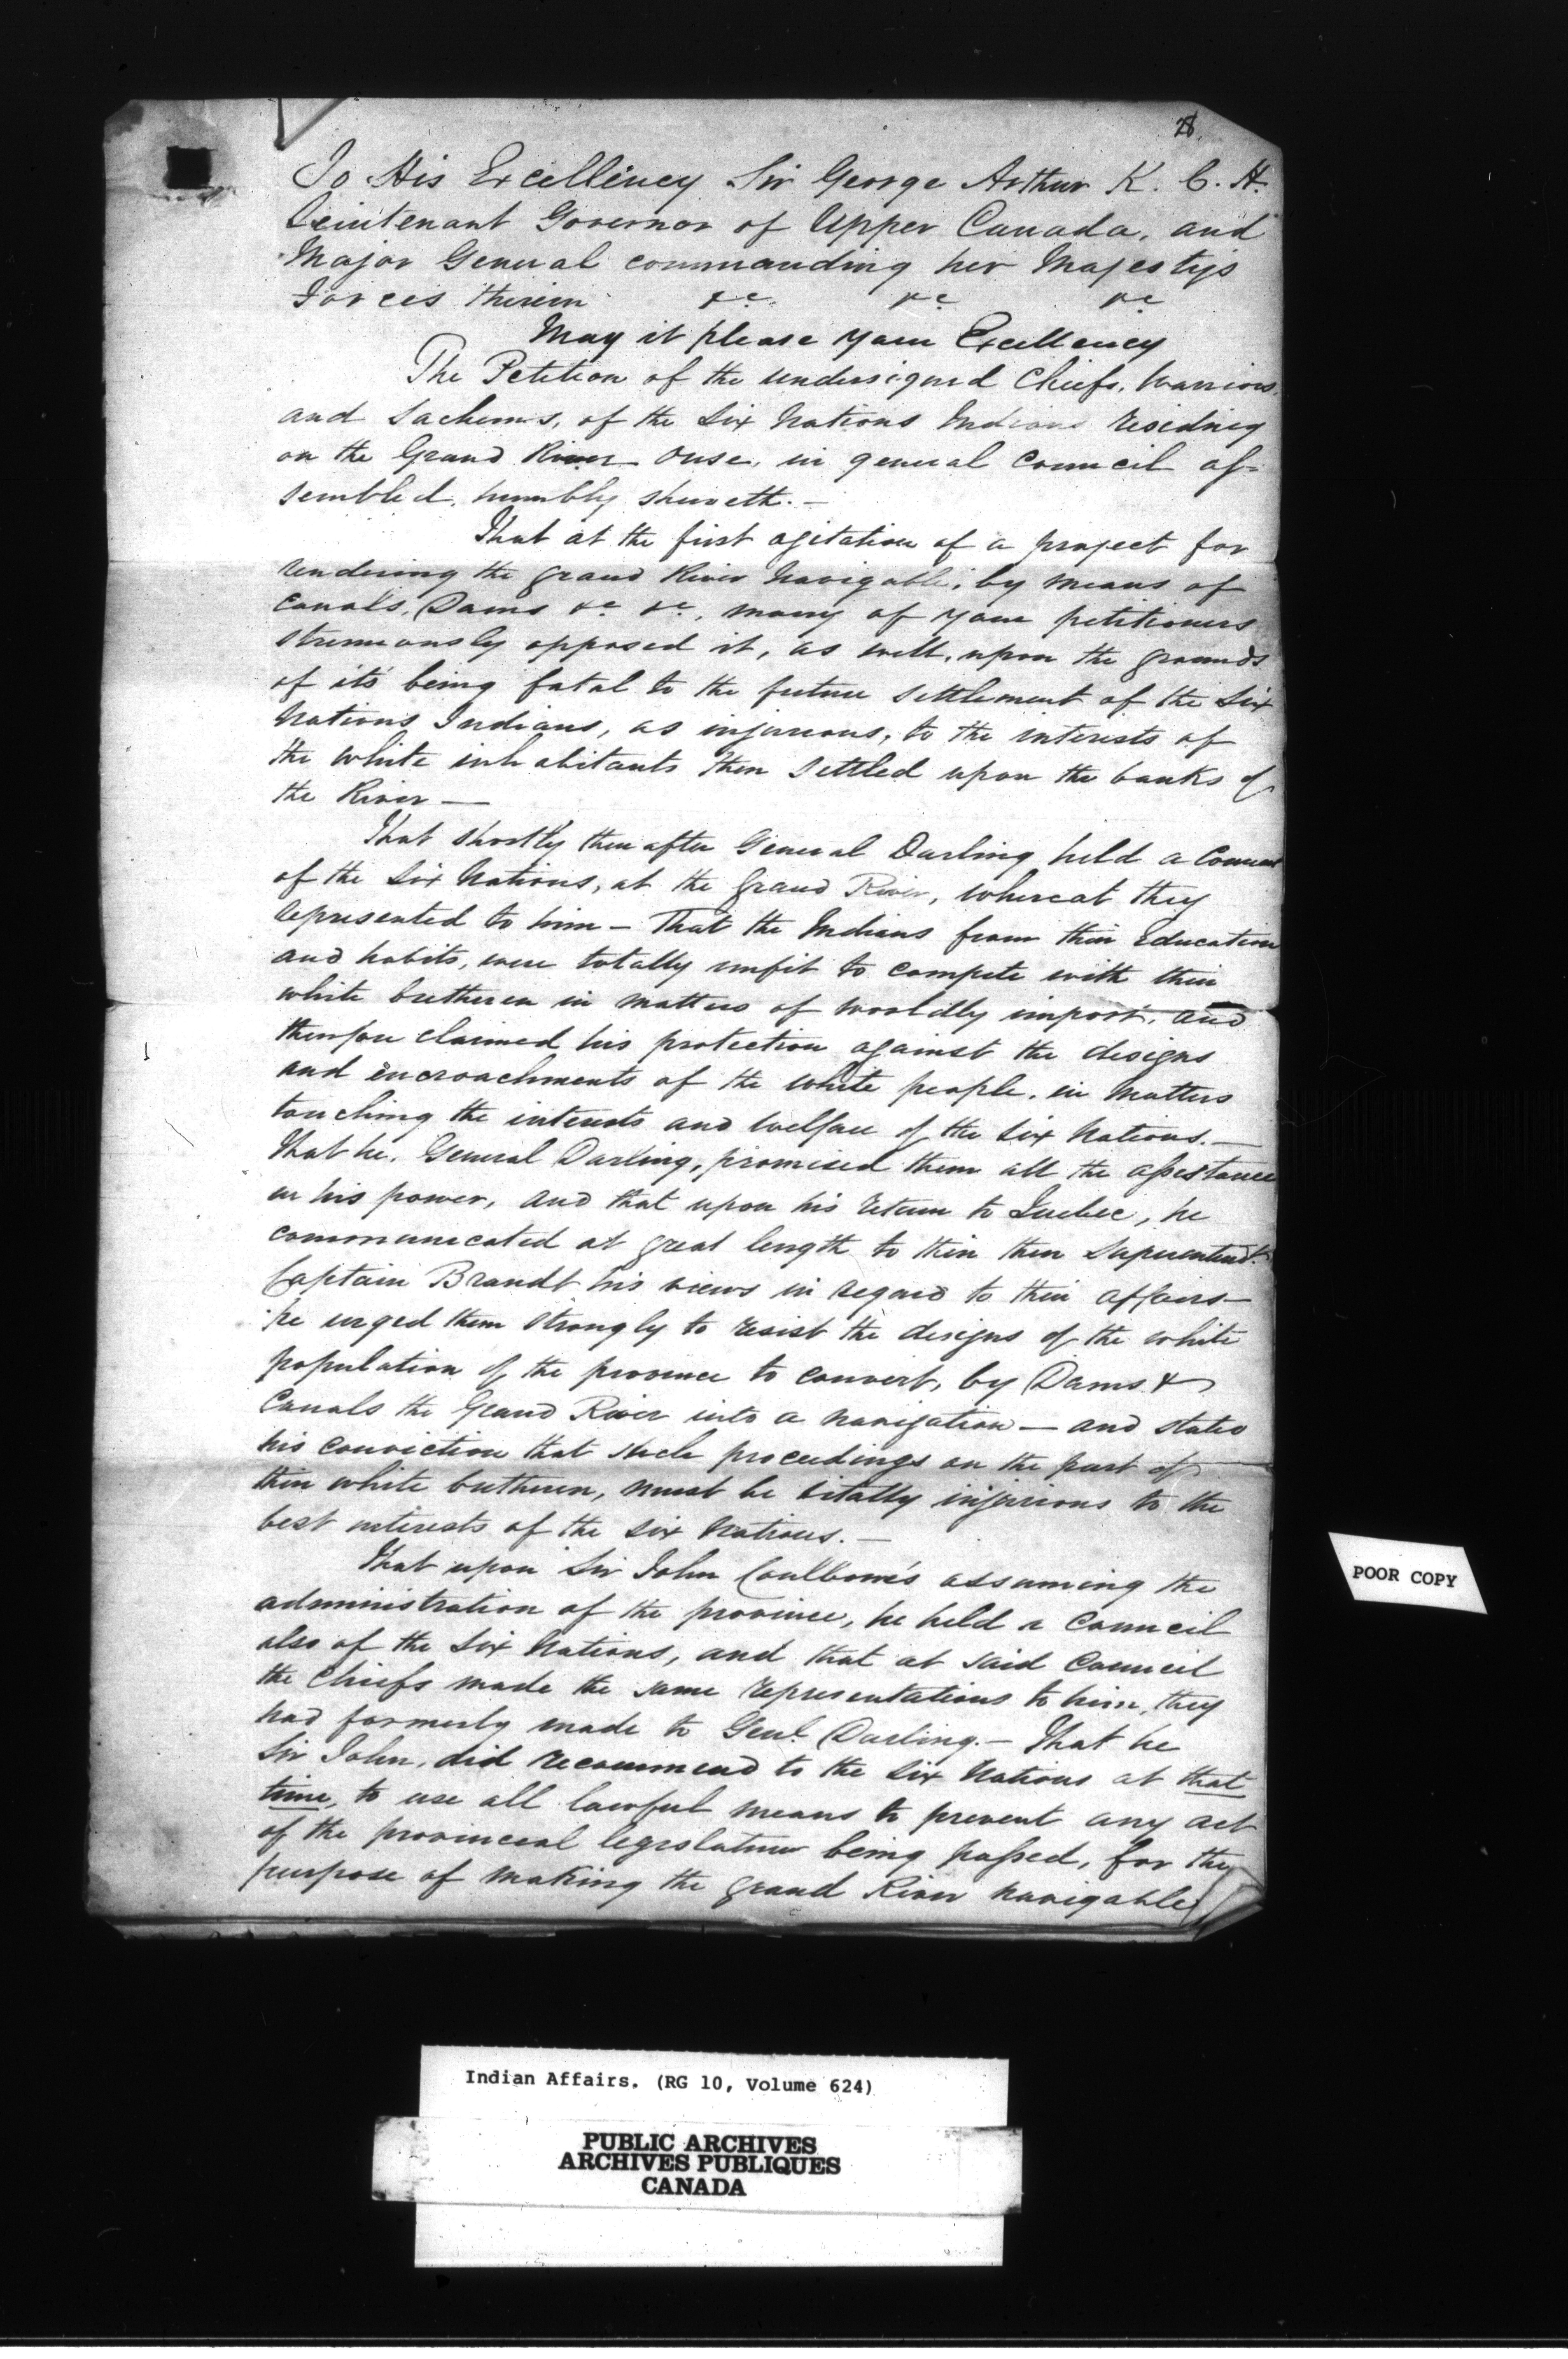 To His Excellency Sir George Arthur K. C. H.
Lieutenant Governor of Upper Canada, and
Major General commanding her Majestys
Forces therein &c. &c &c
May it please your Excellency
The Petition of the undersigned Chiefs, Warriors,
and Sachems, of the Six Nations Indians residing
on the Grand River Ouse, in general Council as=
sembled, humbly sheweth.—
That at the first agitation of a project for
rendering the Grand River Navigable, by means of
Canals, Dams &c &c, many of your petitioners
strenuously opposed it, as well, upon the grounds
of it's being fatal to the future settlement of the Six
Nations Indians, as injurious, to the interests of
the white inhabitants then settled upon the banks of
the River —
That shortly thereafter General Darling held a Council
of the Six Nations, at the Grand River, whereat they
represented to him — That the Indians from their Education
and habits, were totally unfit to compete with their
white bretheren in matters of worldly import, and
therefore claimed his protection against the designs
and encroachments of the white people, in matters
touching the interests and welfare of the Six Nations.—
That he, General Darling, promised them all the assistance
in his power, and that upon his return to Quebec, he
communicated at great length to their then Superintendt.
Captain Brandt his views in regard to their affairs—
he urged them strongly to resist the designs of the white
population of the province to convert, by Dams &
Canals the Grand River into a navigation — and stated
his conviction that such proceedings on the part of
their white bretheren, must be vitally injurious to the
best interests of the Six Nations.—
That upon Sir John Coulborne's assuming the
administration of the province, he held a Council
also of the Six Nations, and that at said Council
the Chiefs made the same representations to him, they
had formerly made to Genl. Darling.— That he
Sir John, did recommend to the Six Nations at that
time, to use all lawful means to prevent any act
of the provincial legislature being passed, for the
purpose of making the Grand River navigable
POOR COPY
Indian Affairs. (RG 10, Volume 624)
PUBLIC ARCHIVES
ARCHIVES PUBLIQUES
CANADA